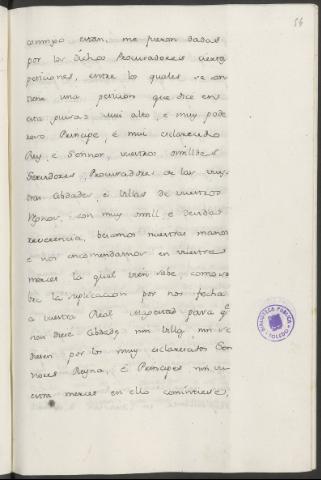 56
conmigo están, me fueron dadas
por los dichos Procuradores ciertas
peticiones, entre los quales se con
tiene una peticion que dice en
esta guisa: mui alto, é muy pode
roso Principe, é mui esclarecido
Rey, é Sennor, vuestros omildes
Servidores, Procuradores de las vues
tras Cibdades, é Villas de vuestros
Regnos, con muy omil é debida
reverencia, besamos vuestras manos
é nos encomendamos en vuestra
merced la qual bien sabe, como so
bre la suplicacion por nos fecha
a vuestra Real Magestad para qe
non diese Cibdades, nin Villas, nin se
diesen por los muy esclarecidos Sen
nores Reyna, é Principes nin vu
estra merced en ello comintiese,
BIBLIOTECA PUBLICA
TOLEDO